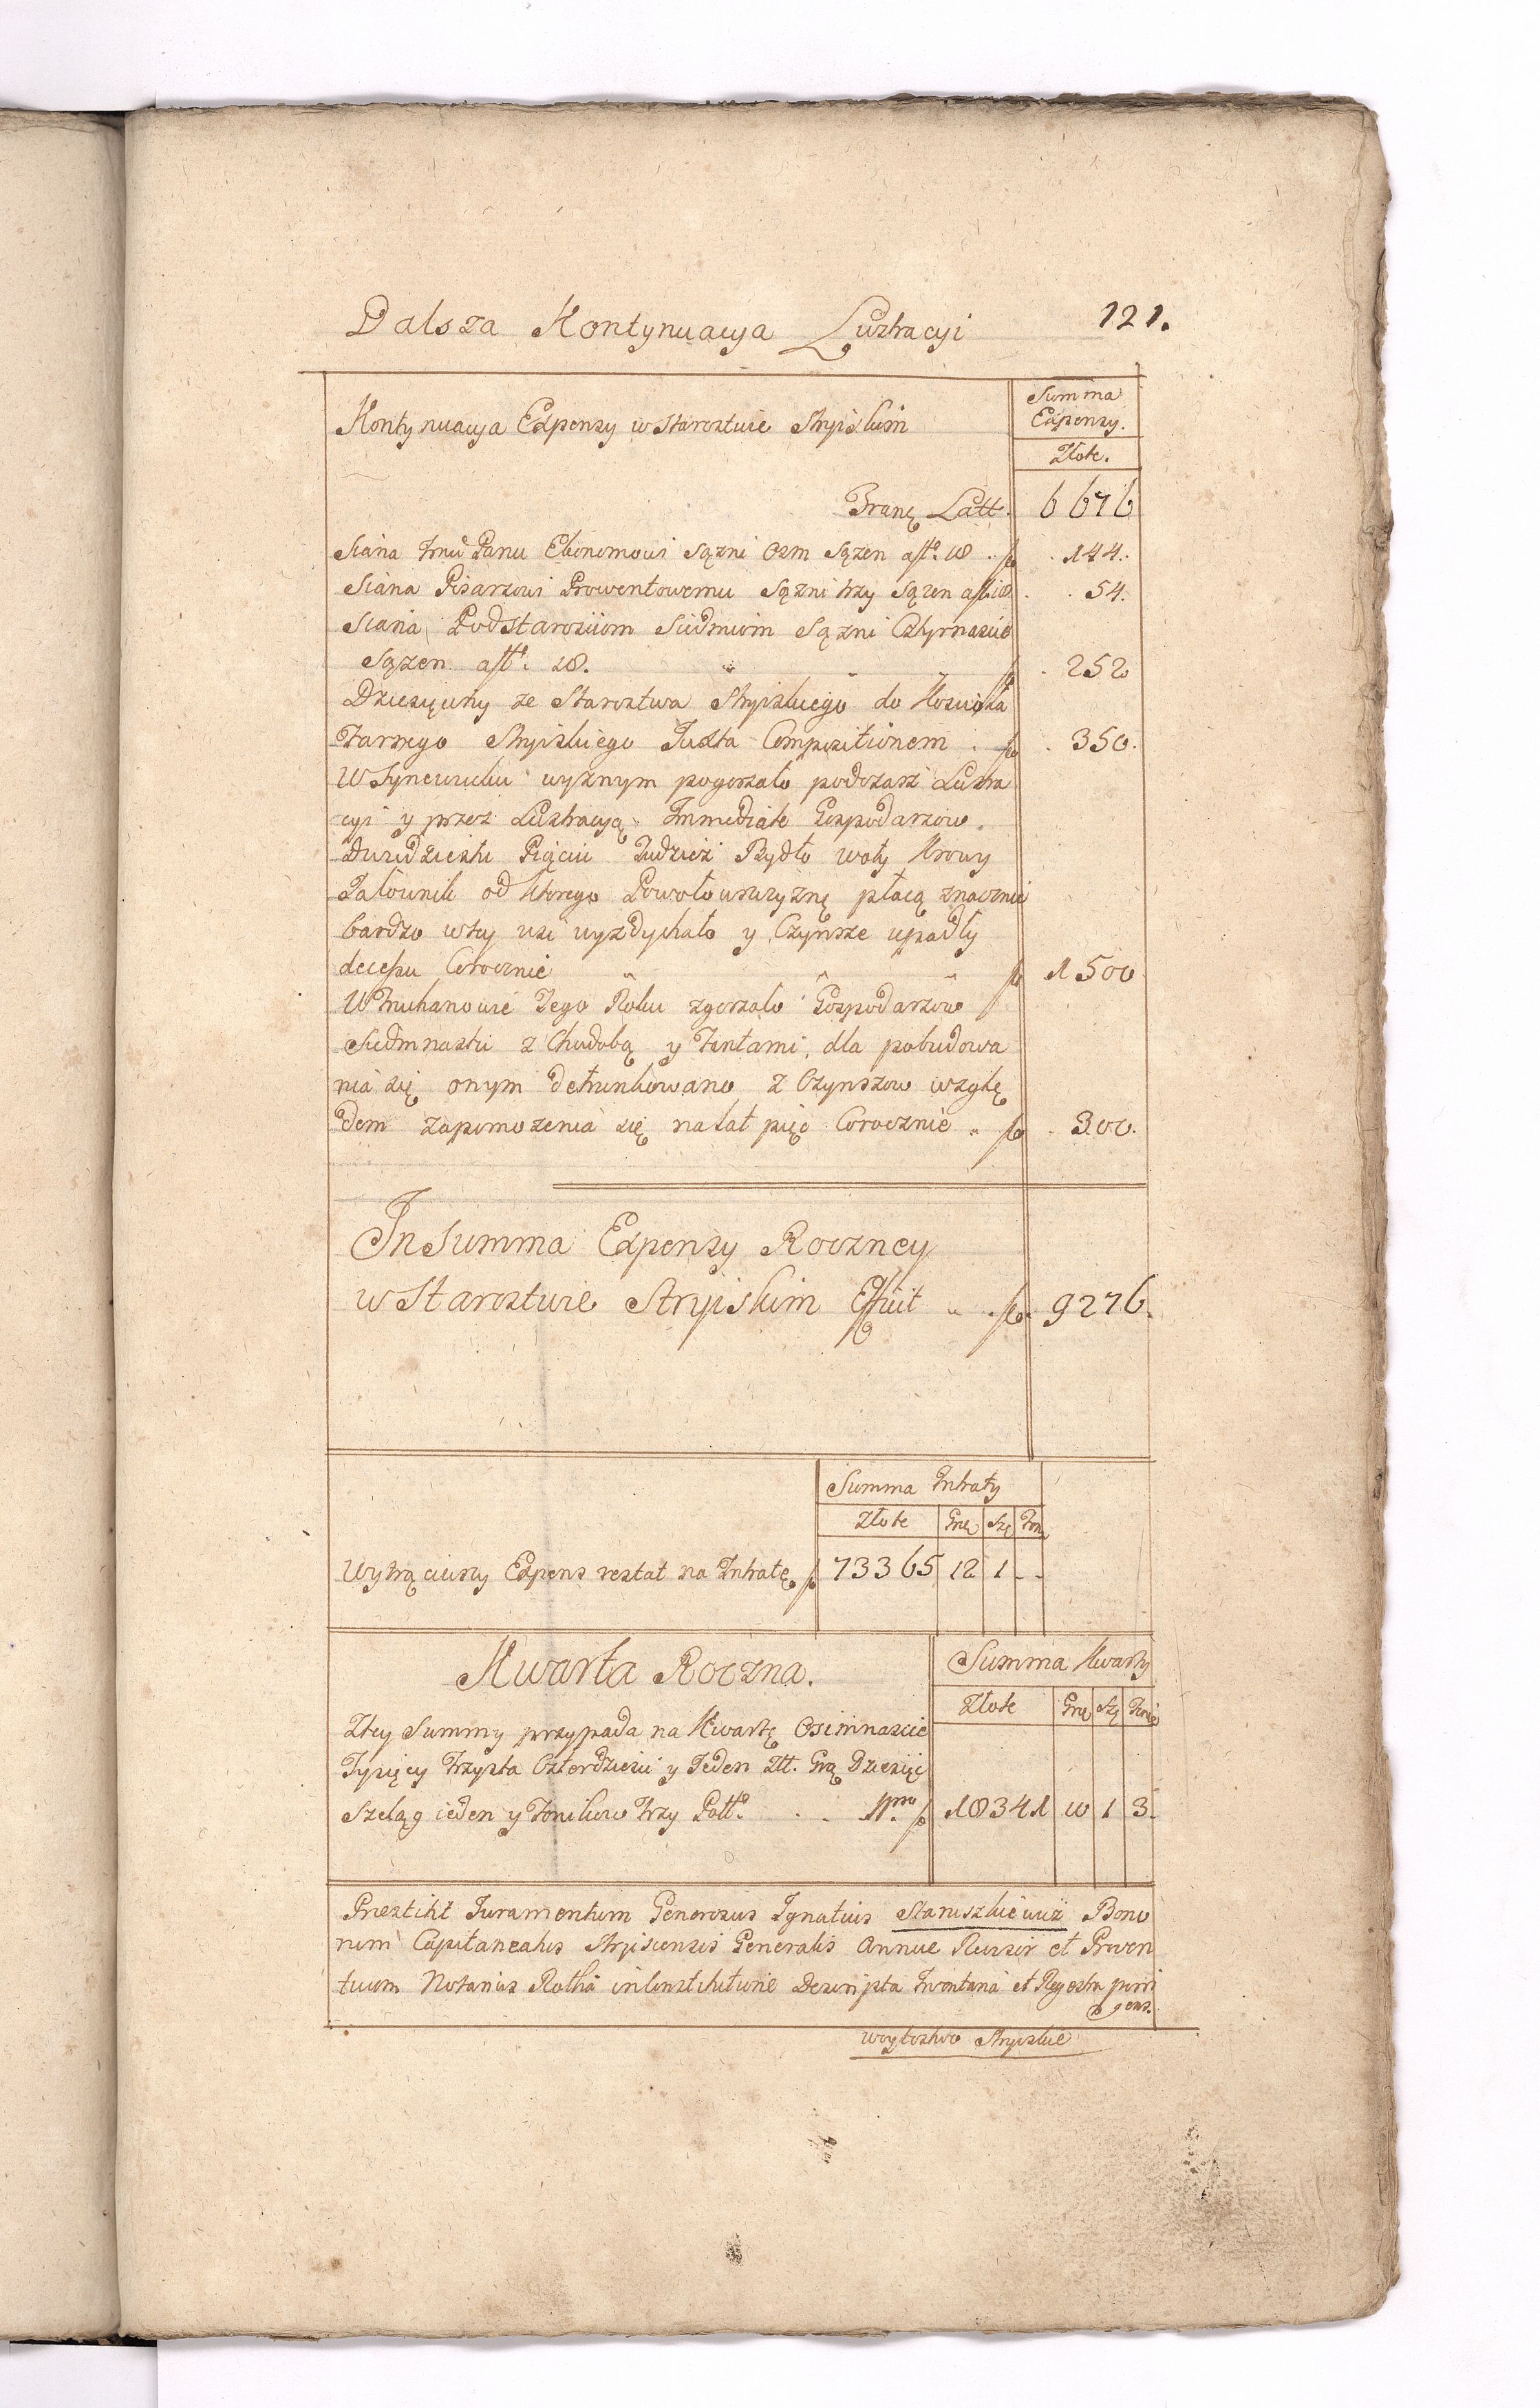 Dalsza Kontynuacya Lustracyi 121.
Kontynuacya Expensy w Starostwie Stryiskim
Summa
Expensy.
Złote.
Latt. 6676
Siana Panu Ekonomowi sązni osm Sązen a fl. 18 . 144.
Siana Pisarzowi Prowentowemu Sązni trzy Sązen a fl. 18 . 54.
Siana Podstarosciom Siedmiom Sązni Czternascie
Sązen a fl. 18. 252
Dziesięciny ze Starostwa Stryiskiego do Koscioła
Farnego Stryiskiego Juxta Compositionem . 350.
W Syneucku wyznym pogorzało podczas Lustra
cyi y przez Lustracyą Immediate Gospodarzow
Dwudziestu Pięciu Tudziesz Bydło woły Krowy
Jałownik od ktorego Powołowszczyznę płacą znacznie
bardzo w tey wsi wyzdychało y Czynsze upadły
decessu Corocznie 1500
W Truchanowie Tego Roku zgorzało Gospodarzow
Siedmnastu z Chudobą y Fantami, dla pobudowa
nia się onym detrunkowano z Czynszow wzglę
dem zapomozenia się na lat pięć Corocznie 300.
In Summa Expensy Roczney
w Starostwie Stryiskim Efficit 9276.
Summa Intraty
Złote Gro Sze
Wytrąciwszy Expens restat na Intratę 73365 12 1 - -
Kwarta Roczna. Summa Kwarty
Złote Gro Sze
Z tey Summy przypada na Kwartę Osimnascie
Tysięcy Trzysta Czterdziesci y Jeden Złł. Gro Dziesięć
Szeląg ieden y Fenikow trzy 18341 10 1 3.
Prestitit Juramentum Generosus Ignatius Staniszkiewicz Bono
rum Capitanealis Stryiensis Generalis Annue Revisor et Proven
tuum Notarius Rotha in Constitutione Descripta Inventaria et Regestra porri
gens.
Woytostwo Stryiskie